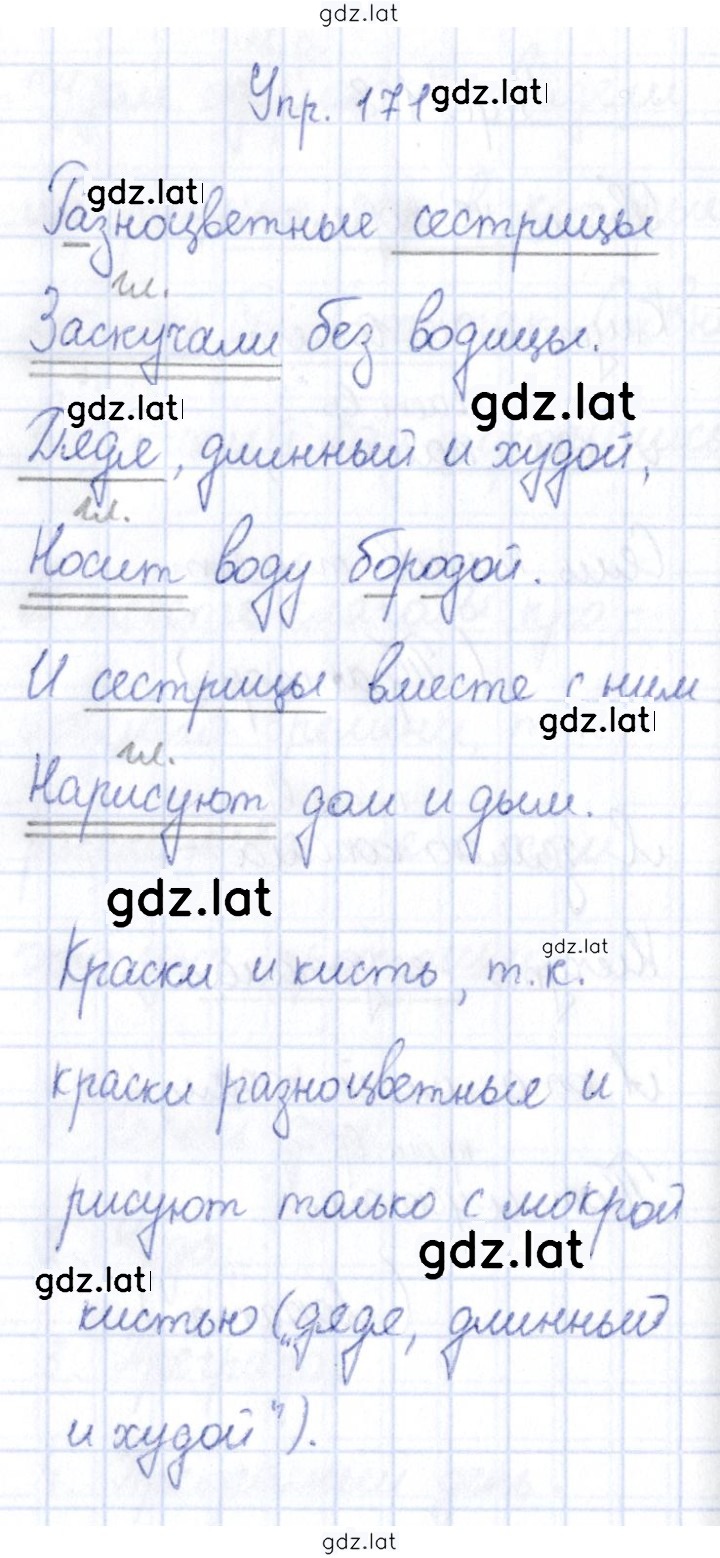 gdz.lat
Упр. 171 gdz.lat
gdz.lat
Разноцветные сестрицы
гл.
Заскучали без водицы.
gdz.lat gdz.lat
Дядя, длинный и худой,
гл.
Носит воду бородой.
И сестрицы вместе с ним
gdz.lat
гл.
Нарисуют дом и дым.
gdz.lat
gdz.lat
Краски и кисть, т.к.
краски разноцветные и
рисуют только с мокрой
gdz.lat
gdz.lat
кистью („дядя, длинный
и худой").
gdz.lat